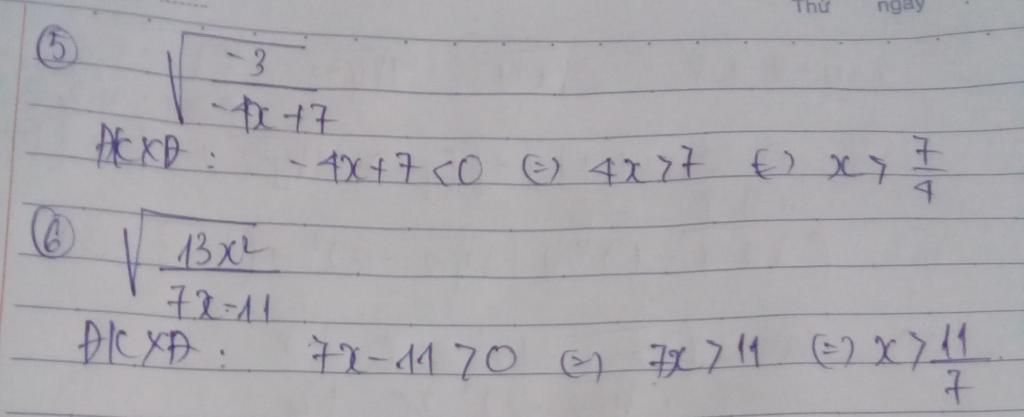 Thứ ngày
⑤ √(-3/(-4x+7))
ĐKXĐ : -4x+7<0 (=) 4x>7 (=) x> 7/4
⑥ √(13x²/(7x-11))
ĐKXĐ : 7x-11>0 (=) 7x>11 (=) x> 11/7